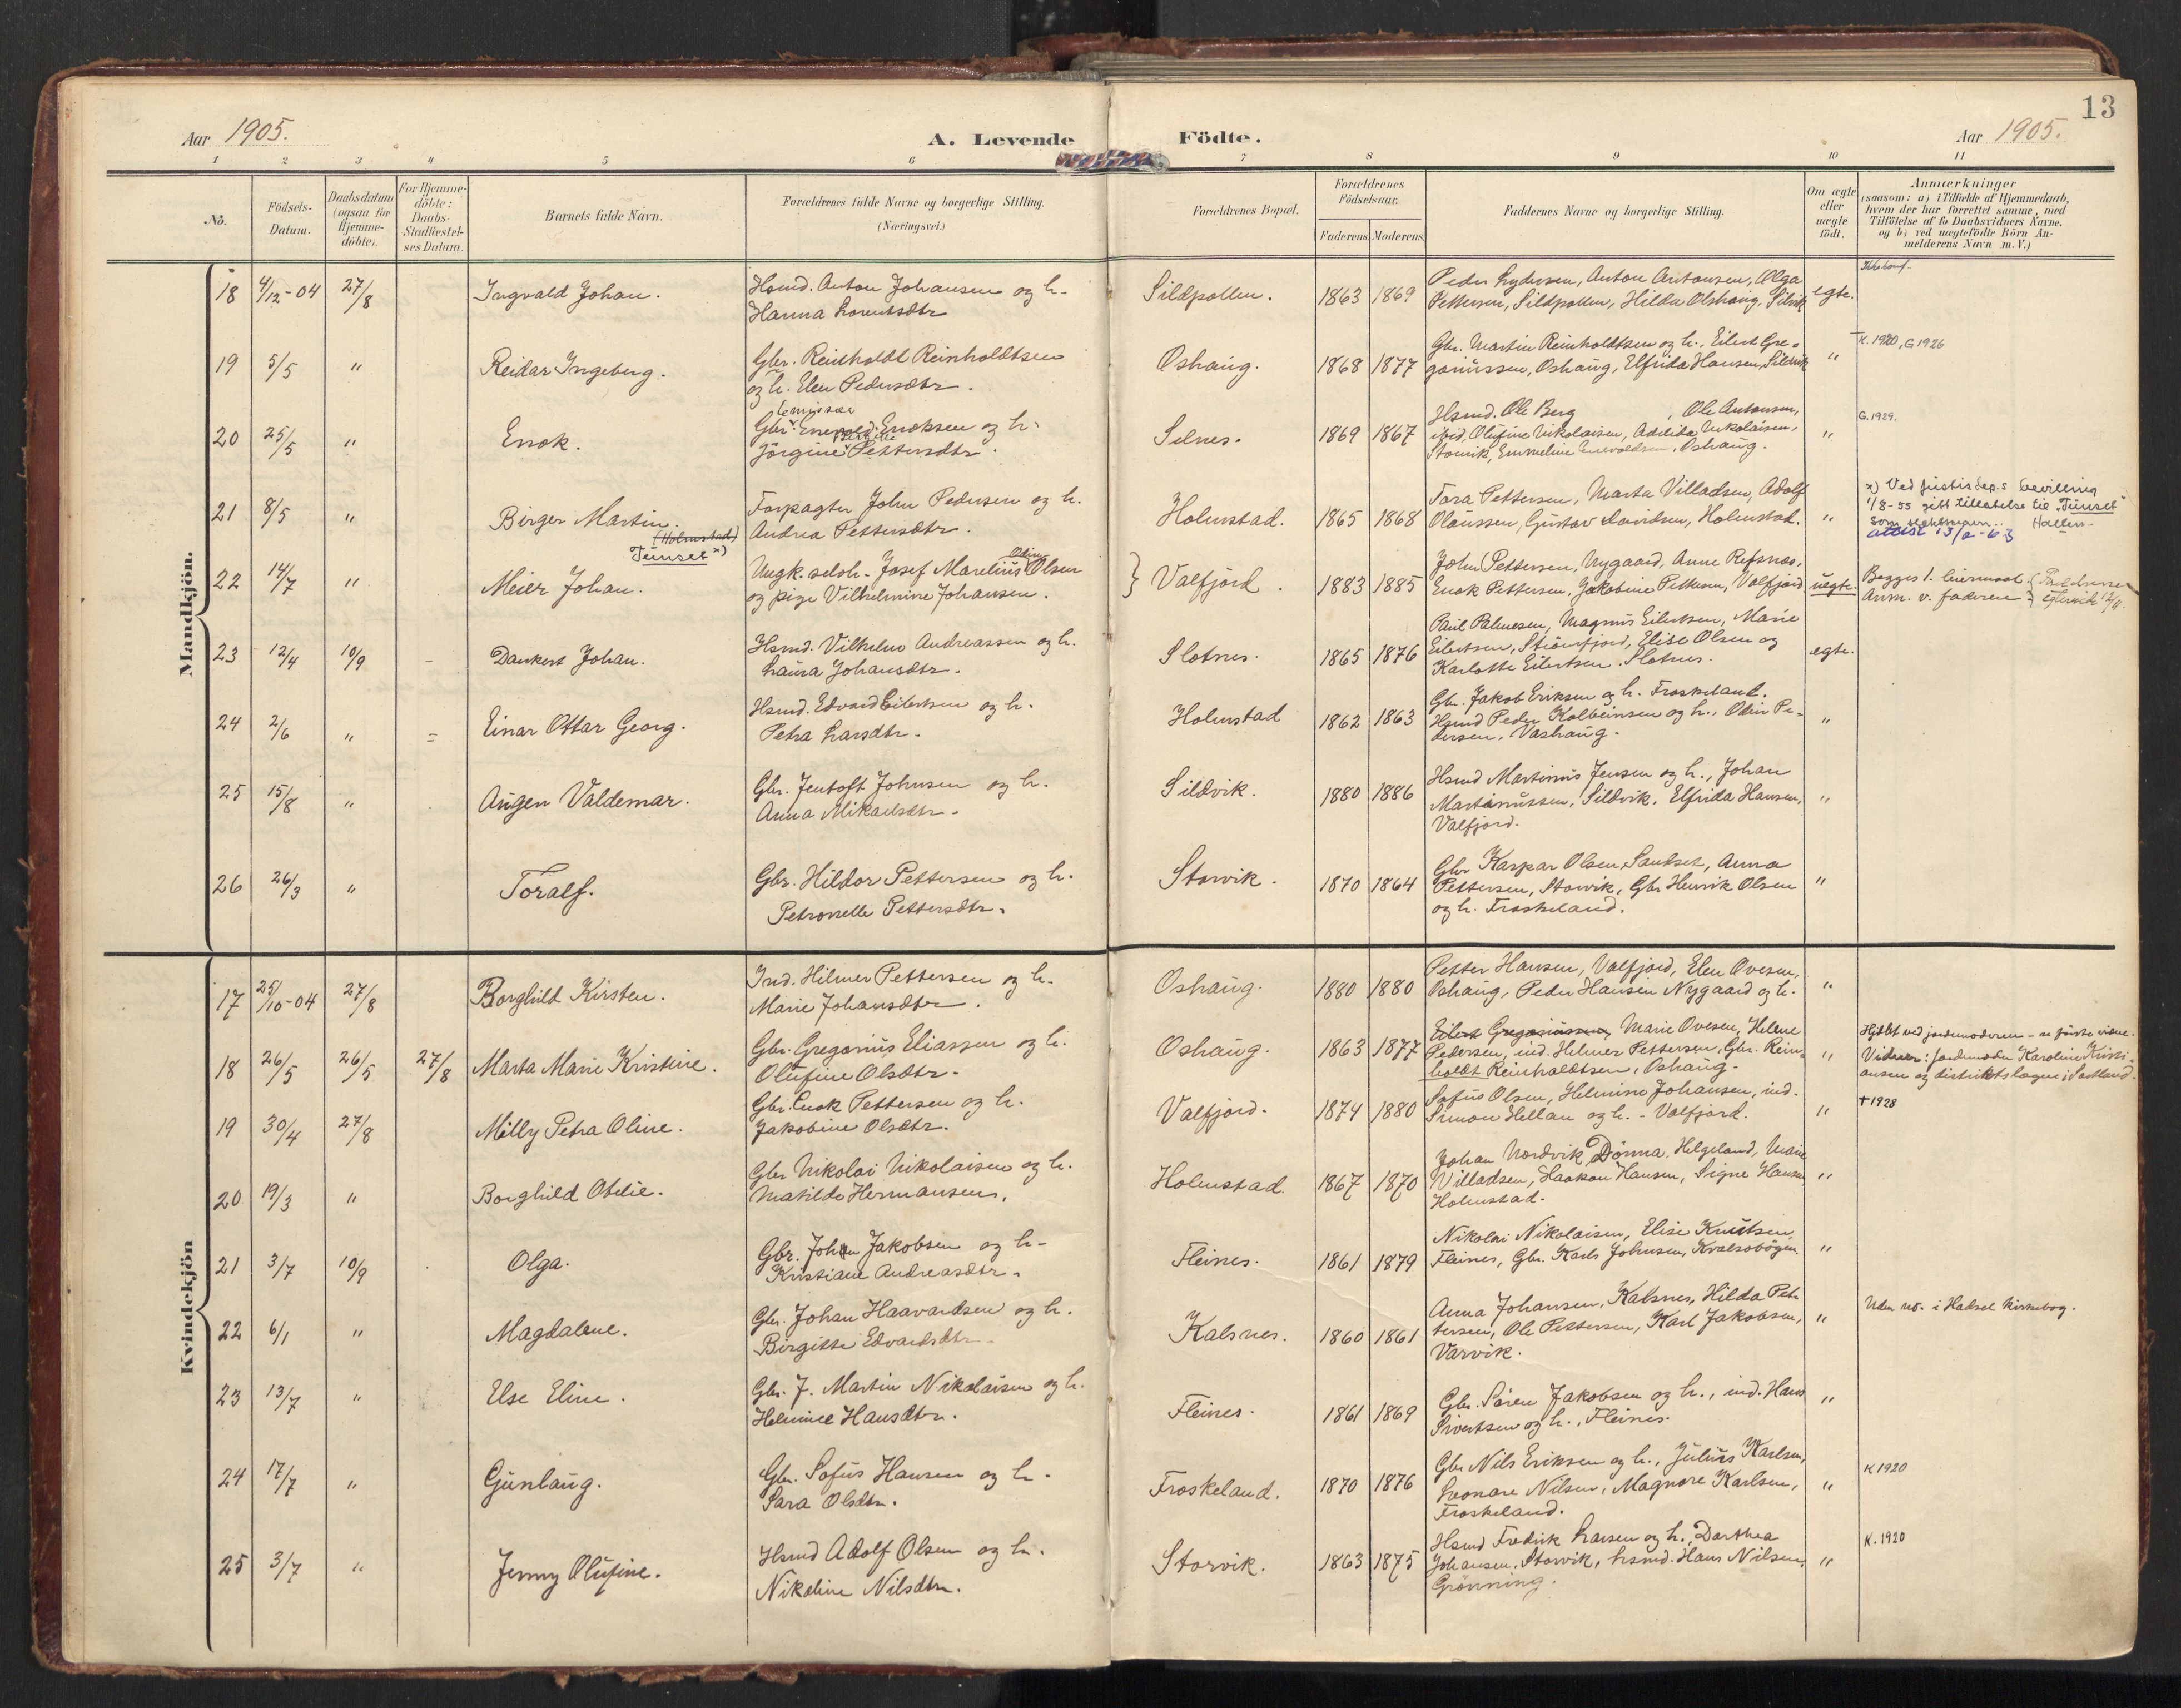 13
Aar 1905.
A. Levende Födte.
Aar 1905.
1 2 3 4 5 6 7 8 9 10 11
No.
Födsels-Datum.
Daabsdatum (ogsaa for Hjemme-döbte).
For Hjemme-döbte: Daabs-Stadfæstel-ses Datum.
Barnets fulde Navn.
Forældrenes fulde Navne og borgerlige Stilling. (Næringsvei.)
Forældrenes Bopæl.
Forældrenes Födselsaar.
Faderens. Moderens.
Faddernes Navne og borgerlige Stilling.
Om ægte eller uægte födt.
Anmærkninger
(saasom: a) i Tilfælde af Hjemmedaab,
hvem der har forrettet samme, med
Tilföielse af to Daabsvidners Navne.
og b) ved uægtefödte Börn An-
melderens Navn m. V.)
Mandkjön.
18 4/12-04 27/8 Ingvald Johan. Hsmd. Anton Johansen og h. Sildpollen. 1863 1869 Peder Lydersen, Anton Antonsen, Olga egte. Ikke konf.
Hanna Lorentsdtr Pettersen, Sildpollen, Hilda Oshaug, Silvik
19 5/5 " Reidar Ingeberg. Gbr. Reinholdt Reinholdtsen Oshaug. 1868 1877 Gbr. Martin Reinholdtsen og h., Eilert Gre- " K. 1920, G 1926
og h. Elen Pedersdtr. goriussen, Oshaug, Elfrida Hansen, Sildvik
20 25/5 " Enok. Gbr. Enevold Enoksen og h. Selnes. 1869 1867 Hsmd. Ole Berg , Ole Antonsen, " G. 1929.
Jörgine Pettersdtr. ibid, Olufine Nikolaisen, Adelida Nikolaisen,
Storvik, Emmeline Enevoldsen, Oshaug.
21 8/5 " Birger Martin. Forpagter John Pedersen og h. Holmstad. 1865 1868 Tora Pettersen, Marta Villadsen, Adolf " x) Ved justisdep.s bevilling
(Holmstad) Andrea Pettersdtr. Olaussen, Gustav Davidsen, Holmstad. 1/8-55 gitt tillatelse til "Tunset"
Tunset x) som slektsnavn.
attest 13/2-63
22 14/7 " Meier Johan. Ungk. selvh. Josef Marelius Odin Olsen } Valfjord. 1883 1885 John Pettersen, Nygaard, Anne Refsnes, uegte. Begges 1. leiermaal.
og pige Vilhelmine Johansen. Enok Pettersen, Jakobine Pettersen, Valfjord Anm. v. faderen
23 12/4 10/9 - Dankert Johan. Hsmd. Vilhelm Andreassen og h. Slotnes. 1865 1876 Paul Palmesen, Magnus Eilertsen, Marie egte.
Laura Johansdtr. Eilertsen, Straumfjord, Elise Olsen og
Karlotte Eilertsen. Slotnes.
24 2/6 " = Einar Ottar Georg. Hsmd. Edvard Eilertsen og h. Holmstad 1862 1863 Gbr. Jakob Eriksen og h. Froskeland. "
Petra Larsdtr. Hsmd Peder Kolbeinsen og h., Odin Pe-
dersen, Vashaug.
25 15/8 " Augen Valdemar. Gbr. Jentoft Johnsen og h. Sildvik. 1880 1886 Hsmd Martinus Jensen og h., Johan "
Anna Mikaelsdtr. Martinussen, Sildvik. Elfrida Hansen,
Valfjord.
26 26/3 " Toralf. Gbr. Hildor Pettersen og h. Storvik. 1870 1864 Gbr Kaspar Olsen, Sandset, Anna "
Petronelle Pettersdtr. Pettersen, Storvik, Gbr Henrik Olsen
og h. Froskeland.
Kvindekjön
17 25/10-04 27/8 Borghild Kirsten. Ind. Hilmer Pettersen og h. Oshaug. 1880 1880 Petter Hansen, Valfjord, Elen Ovesen, "
Marie Johansdtr. Oshaug, Peder Hansen Nygaard og h.
18 26/5 26/5 27/8 Marta Marie Kristine. Gbr. Gregorius Eliassen og h. Oshaug. 1863 1877 Eilert Gregoriussen, Marie Ovesen, Helene " Hjdbt ved jordemoderen - se förste vidne.
Olufine Olsdtr. Pedersen, ind. Hilmer Pettersen, Gbr. Rein- Vidner: Jordmoder Karoline Kristi-
holdt Reinholdtsen, Oshaug. ansen og distriktslægen i Sortland.
19 30/4 27/8 Milly Petra Oline. Gbr. Enok Pettersen og h. Valfjord. 1874 1880 Sofus Olsen, Helmine Johansen, ind. " † 1928
Jakobine Olsdtr. Simon Hellan og h. - Valfjord.
20 19/3 " Borghild Otelie. Gbr Nikolai Nikolaisen og h. Holmstad. 1867 1870 Johan Nordvik, Dönna, Helgeland, Marie "
Matilde Hermansen. Villadsen, Haakon Hansen, Signe Hansen
Holmstad.
21 3/7 10/9 Olga. Gbr. John Jakobsen og h. Fleines. 1861 1879 Nikolai Nikolaisen, Elise Knutsen, "
Kristiane Andreasdtr. Fleines, Gbr. Karls Johnsen, Kvalsobögen.
22 6/1 " Magdalene. Gbr. Johan Haavardsen og h. Kalsnes. 1860 1861 Anna Johansen, Kalsnes, Hilda Pet- " Uden no. i Hadsel kirkebog.
Birgitte Edvardsdtr. tersen, Ole Pettersen, Karl Jakobsen,
Varvik.
23 13/7 " Else Eline. Gbr. J. Martin Nikolaisen og h. Fleines. 1861 1869 Gbr. Sören Jakobsen og h., ind. Hans "
Helmine Hansdtr. Sivertsen og h., Fleines.
24 17/7 " Gunlaug. Gbr. Sofus Hansen og h. Froskeland. 1870 1876 Gbr Nils Eriksen og h., Julius Karlsen, " K 1920
Sara Olsdtr. Leonare Nilsen, Magnore Karlsen,
Froskeland.
25 3/7 " Jenny Olufine. Hsmd Adolf Olsen og h. Storvik. 1863 1875 Hsmd Fredrik Larsen og h., Dorthea " K. 1920
Nikoline Nilsdtr. Johansen, Storvik, hsmd. Hans Nilsen,
Grönning.